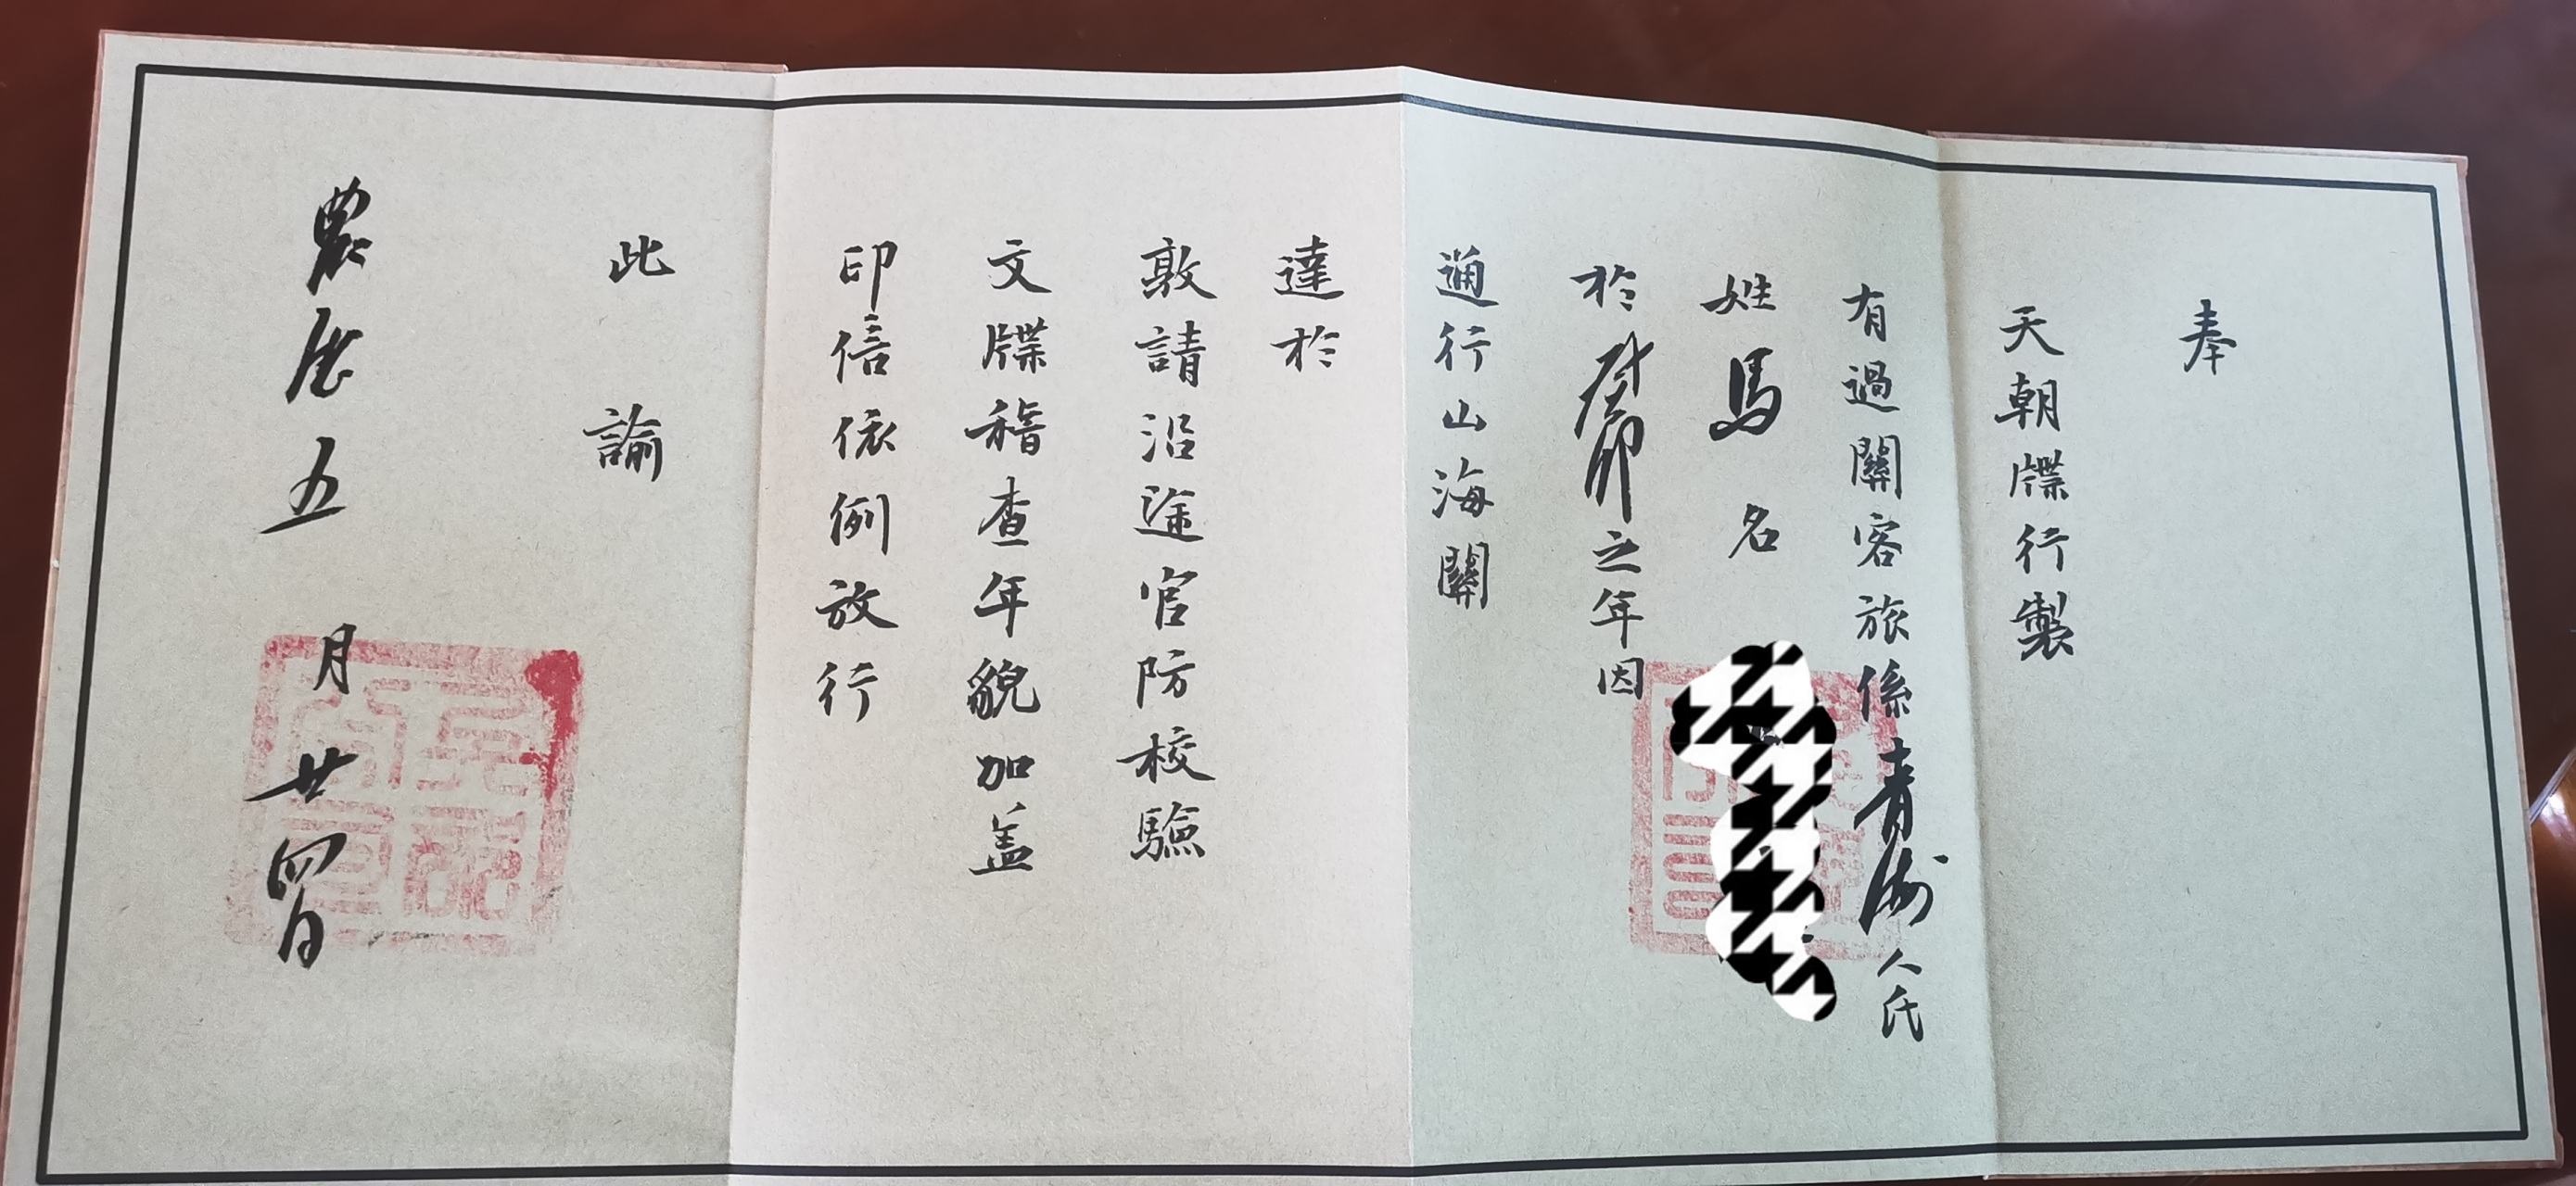 奉
天朝牒行製
有過關客旅係青海人氏
姓馬名
於癸卯之年因
通行山海關
達於
敦請沿途官防校驗
文牒稽查年貌加盖
印信依例放行
此諭
農历五月廿四日